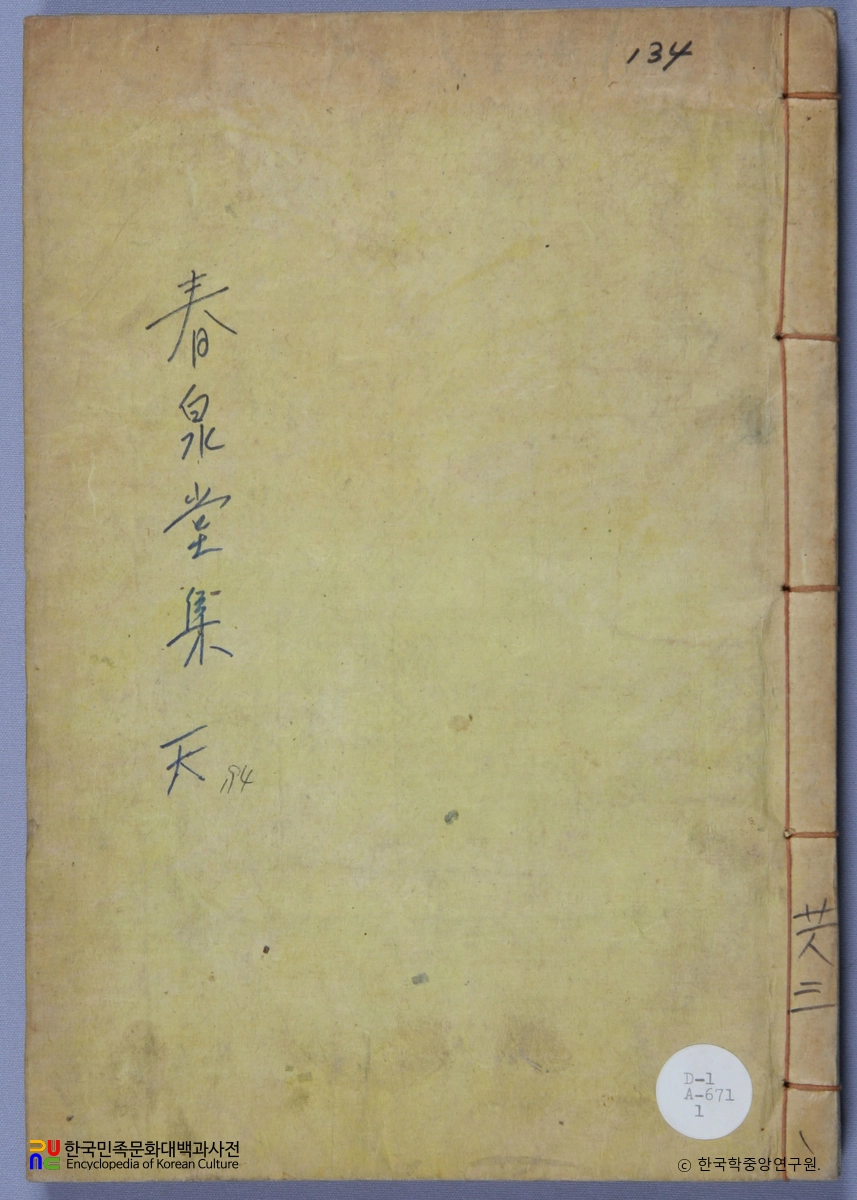 134
春泉堂集 天
194
共三
D-1
A-671
1
한국민족문화대백과사전
Encyclopedia of Korean Culture
ⓒ 한국학중앙연구원.